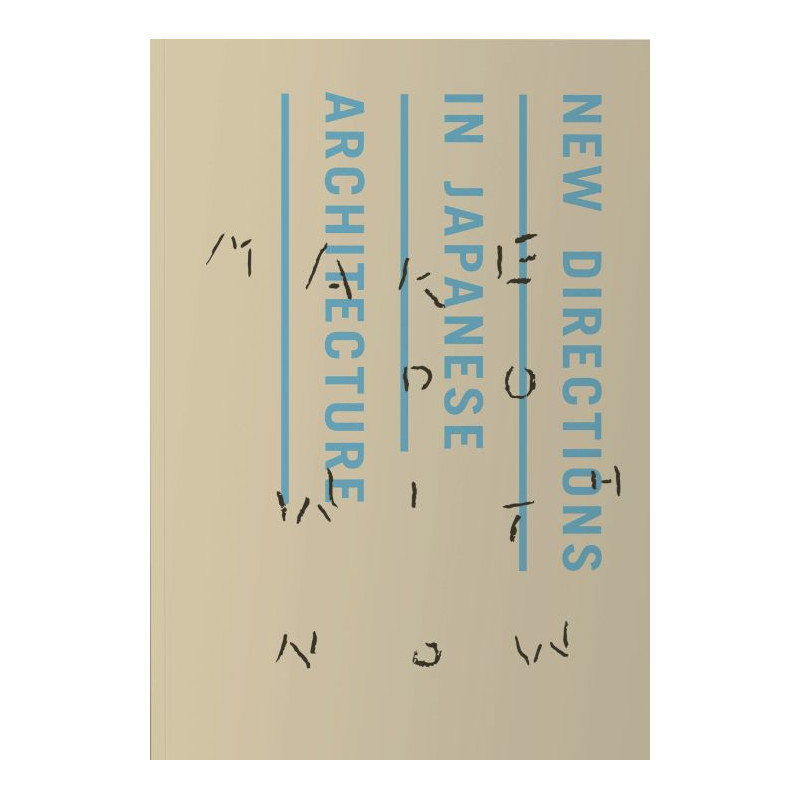 NEW DIRECTIONS
IN JAPANESE
ARCHITECTURE
MAKE
DO
WITH
NOW